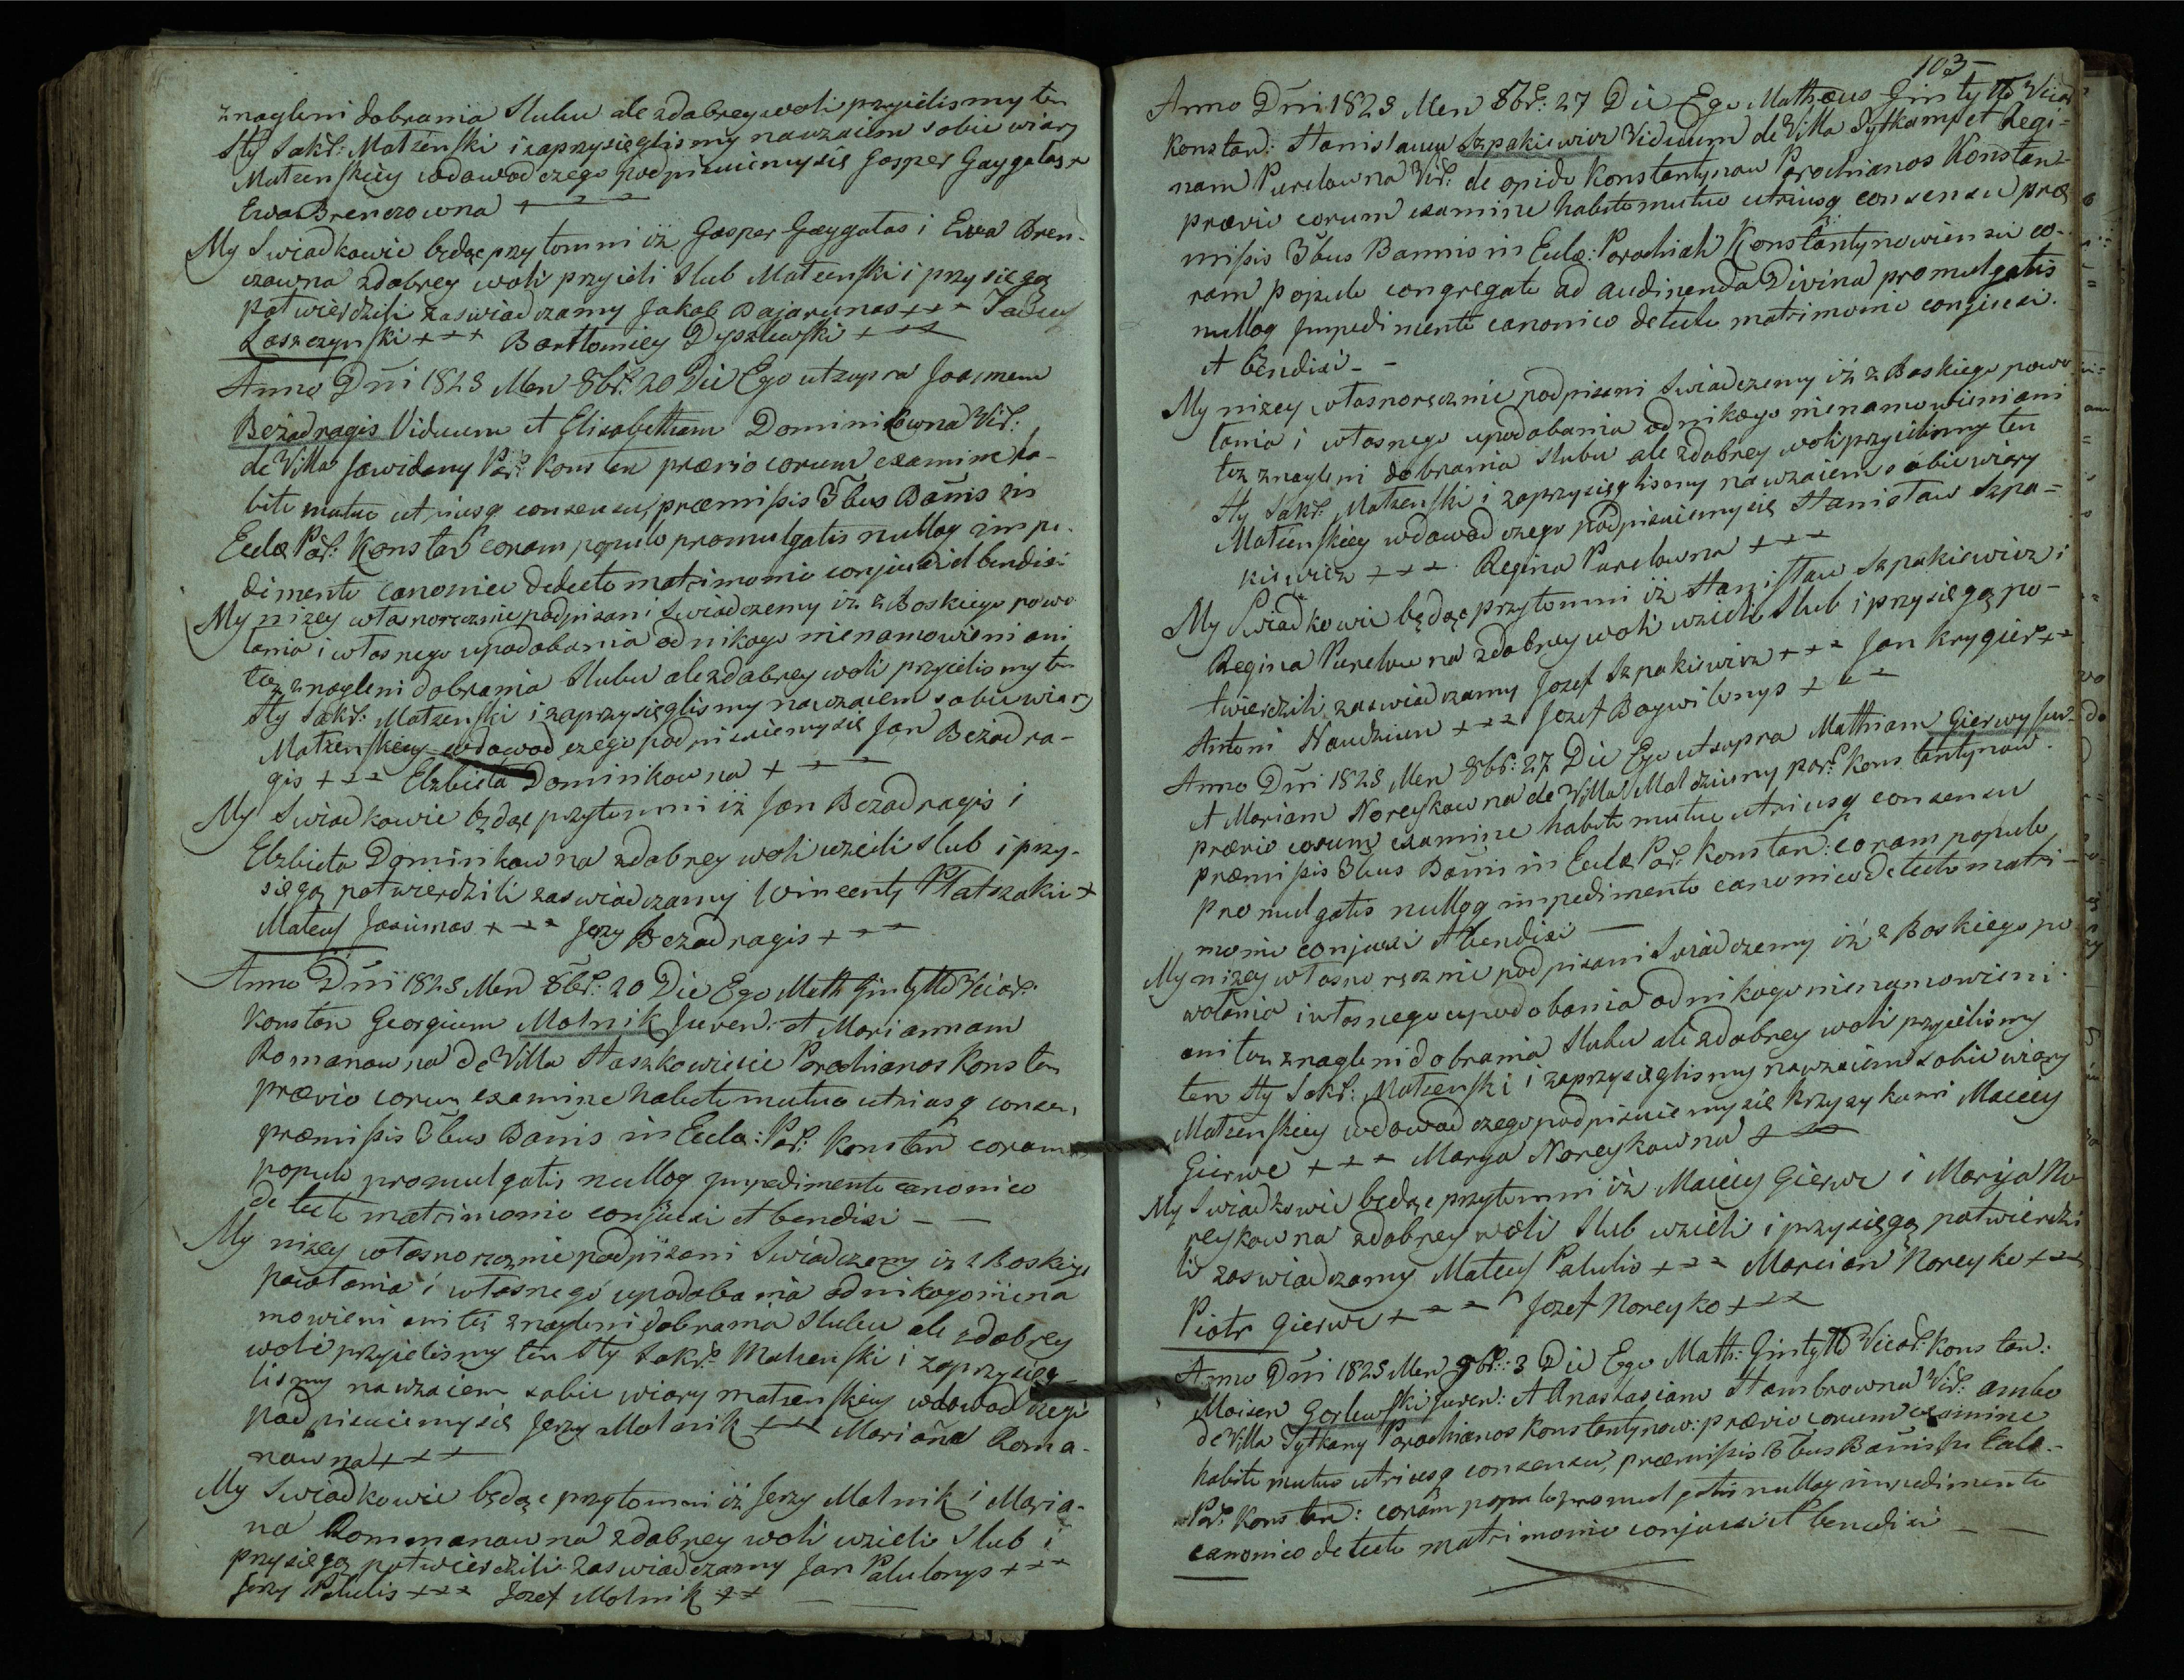 znagleni dobrania Slubu ale zdobrey woli przyielismy ten
Sty Sakr: Małżenski i zaprzysięglismy nawzaiem sobie wiarę
Małżenskiey wdowod czego podpisuiemy się Gasper Gaygalas x
Ewa Brenczowna + + +
My Swiadkowie będąc przytomni iż Gasper Gaygalas i Ewa Bren-
czowna zdobrey woli przyieli Slub Małżenski i przysięgą
potwierdzili zaswiadczamy Jakob Bajarunas + + + Tadeusz
Laszczynski + + + Bartłomiey Dyszlewski + + +
Anno Dni 1823 Men 8br: 20 Die Ego ut supra Joannem
Beżadragis Viduum et Elisabetham Dominikowna Vid:
de Villa Jawidany Par: Konstan prævio eorum examine ha-
bito mutuo utriusq consensu, præmissis 3bus Banis in
Eccla Par: Konstan coram populo promulgatis nulloq impe-
dimento canonico detecto matrimonio conjunxi et bendixi
My niżey własnoręcznie podpisani Swiadczemy iż z Boskiego powo
łania i własnego upodobania od nikogo nienamowieni ani
też znagleni dobrania Slubu ale zdobrey woli przyielismy ten
Sty Sakr: Małżenski i zaprzysięglismy nawzaiem sobie wiarę
Małżenskiey wdowod czego podpisuiemy się Jan Beżadra-
gis + + + Elzbieta Dominikowna + + +
My Swiadkowie będąc przytomni iż Jan Bezadragis i
Elzbieta Dominikowna zdobrey woli wzieli Slub i przy-
sięgą potwierdzili zaswiadczamy Wincenty Płatszakis +
Mateusz Jasiunas + + + Jerzy Bezadragis + + +
Anno Dni 1823 Men 8br: 20 Die Ego Math Gintyłło Vicar:
Konstan Georgium Molnik Juven: et Mariannam
Romanowna de Villa Staszkowicie Parochianos Konstan
prævio eorum examine habito mutuo utriusq consen,
præmissis 3bus Banis in Eccla: Par: Konstan coram
populo promulgatis nulloq Impedimento canonico
detecto matrimonio conjunxi et bendixi – –
My niżey własnoręcznie podpisani Swiadczemy iż z Boskiego
powołania i własnego upodobania od nikogo niena
mowieni ani też znagleni dobrania Slubu ale zdobrey
woli przyielismy ten Sty Sakr: Małżenski i zaprzysieg-
lismy nawzaiem sobie wiary małżenskiey wdowod czego
podpisuiemy się Jerzy Molnik + + + Mariana Roma-
nowna + + +
My Swiadkowie będąc przytomni iż Jerzy Molnik i Maria-
na Rommanowna zdobrey woli wzieli Slub i
przysięgą potwierdzili zaswiadczamy Jan Palulonys + + +
Jerzy Palulis + + + Jozef Molnik + + – –
103 –
Anno Dni 1823 Men 8br: 27 Die Ego Mathæus Gintyłło Vicar
Konstan: Stanislaum Szpakiewicz Viduum de Villa Sytkuny et Regi-
nam Purelowna Vid: de opido Konstantynow Parochianos Konstant-
prævio eorum examine habito mutuo utriusq consensu præ
missis 3bus Bannis in Eccla: Parochiali Konstantynowiensi co-
ram populo congregato ad audienda Divina promulgatis
nulloq Impedimento canonico detecto matrimonio conjunxi
et bendixi – –
My niżey własnoręcznie podpisani Swiadczemy iż z Boskiego powo
łania i własnego upodobania od nikogo nienamowieni ani
też znagleni dobrania Slubu ale zdobrey woli przyielismy ten
Sty Sakr: Małżenski i zaprzysięglismy nawzaiem sobie wiary
Małżenskiey wdowod czego podpisuiemy się Stanisław Szpa=
kiewicz + + + Regina Purelowna + + +
My Swiadkowie będąc przytomni iż Stanisław Szpakiewicz i
Regina Purelowna zdobrey woli wzieli Slub i przysięgą po-
twierdzili zaswiadczamy Jozef Szpakiewicz + + + Jan Krygier + +
Antoni Naudziun + + + Jozef Boywilonys + + +
Anno Dni 1823 Men 8br: 27 Die Ego ut supra Mathiam Gierwy Juv-
et Mariam Noreykowna de Villa Małdziuny par: Konstantynow
prævio eorum examine habito mutuo utriusq consensu
præmissis 3bus Banni in Eccla Par: Konstan: coram populo
promulgatis nulloq impedimento canonico detecto matri-
monio conjunxi et bendixi –
My niżey własnoręcznie podpisani Swiadczemy iż z Boskiego po
wołania i własnego upodobania od nikogo nienamowieni
ani też znagleni dobrania Slubu ale zdobrey woli przyielismy
ten Sty Sakr: Małżenski i zaprzysięglismy nawzaiem sobie wiary
Małżenskiey wdowod czego podpisuiemy się krzyzykami Maciey
Gierwe + + + Marya Noreykowna + + +
My Swiadkowie będąc przytomni iż Maciey Gierwe i Marya No
reykowna zdobrey woli Slub wzieli i przysięgą potwierdzi
li zaswiadczamy Mateusz Palulis + + + Marcian Noreyko + + +
Piotr Gierwe + + + Jozef Noreyko + + +
Anno Dni 1823 Men 9br: 3 Die Ego Math: Gintyłło Vicar: Konstan:
Moisen Gorlewski Juven: et Anastasiam Stambrowna Vid: ambo
de Villa Sytkuny Parochianos Konstantynow: prævio eorum examine
habito mutuo utriusq consensu, præmissis 3bus Banis in Eccla-
Par: Konstan: coram populo promulgatis nulloq impedimento
canonico detecto matrimonio conjunxi et benedixi – –